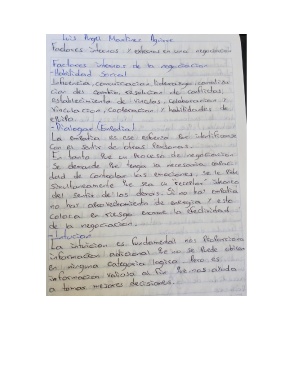 Luis Angel Martinez Aguirre
Factores internos y externos en una negociación
Factores internos de la negociacion
-Habilidad Social
Influencia, comunicacion, liderazgo, canalizacion
del cambio, resolucion de conflictos,
establecimiento de vinculos, colaboracion y
vinculacion, cooperacion y habilidades de
equipo.
-Dialogar (Empatia)
La empatia es ese esfuerzo por identificarse
con el sentir de otras personas.
En tanto que un proceso de negociacion
se demanda que tenga la necesaria
dad de controlar las emociones, se le pide
simultaneamente que sea un receptor
del sentir de los demas. Si no hay empatia
no hay aprovechamiento de energia y esto
coloca en riesgo la efectividad
de la negociacion.
-Intuicion
La intuicion es fundamental nos proporciona
informacion adicional que no se puede
en ninguna categoria logica pero es
informacion valiosa al fin que nos ayuda
a tomar mejores decisiones.